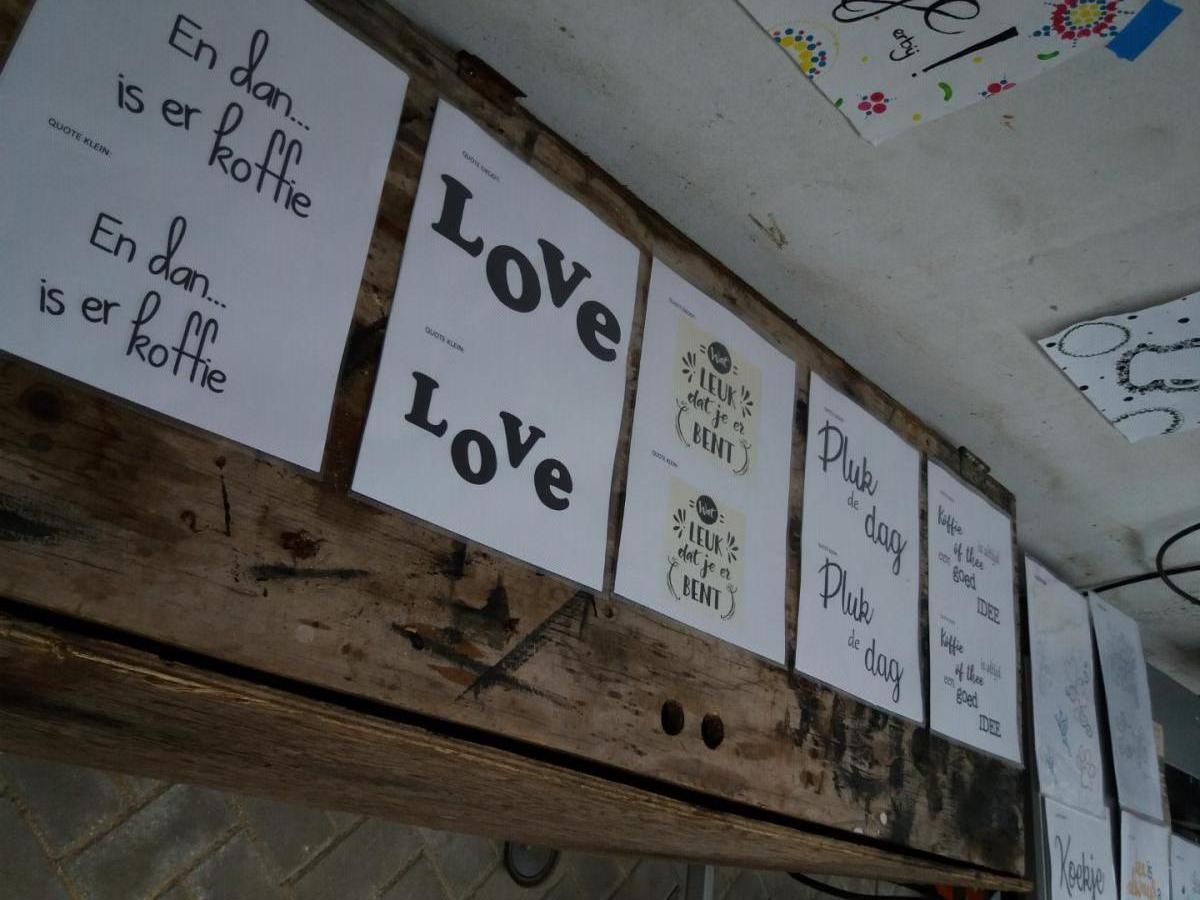 En dan...
is er koffie
QUOTE KLEIN:
En dan...
is er koffie
QUOTE GROOT:
Love
QUOTE KLEIN:
Love
QUOTE GROOT:
Wat
LEUK
dat je er
BENT
QUOTE KLEIN:
Wat
LEUK
dat je er
BENT
Pluk
de
dag
Pluk
de
dag
Koffie
of thee is altijd
een goed
IDEE
Koffie
of thee is altijd
een goed
IDEE
Koekje
erbij!